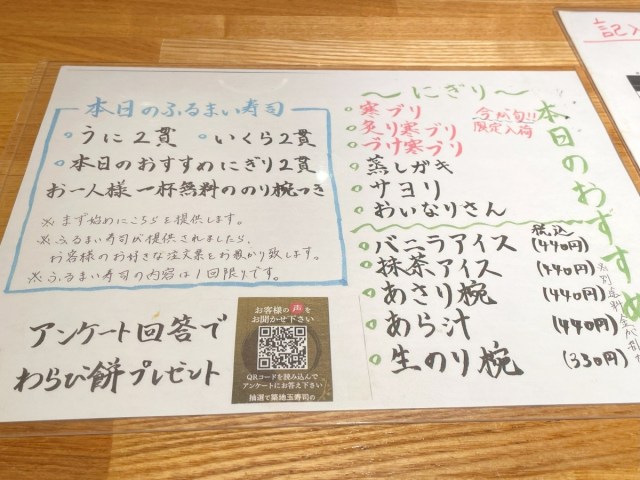 本日のふるまい寿司
○うに2貫 ○いくら2貫
○本日のおすすめにぎり2貫
お一人様一杯無料ののり椀つき
※まず始めにこちらを提供します。
※ふるまい寿司が提供されましたら、
お客様のお好きな注文票をお預かり致します。
※ふるまい寿司の内容は1回限りです。
アンケート回答で
わらび餅プレゼント
お客様の声を
お聞かせ下さい
QRコードを読み込んで
アンケートにお答え下さい
抽選で築地玉寿司の
本日のおすすめ
〜にぎり〜
○寒ブリ
○炙り寒ブリ
○づけ寒ブリ
今が旬!!
限定入荷
○蒸しガキ
○サヨリ
○おいなりさん
税込
○バニラアイス (440円)
○抹茶アイス (440円)
○あさり椀 (440円)
○あら汁 (440円)
○生のり椀 (330円)
記入